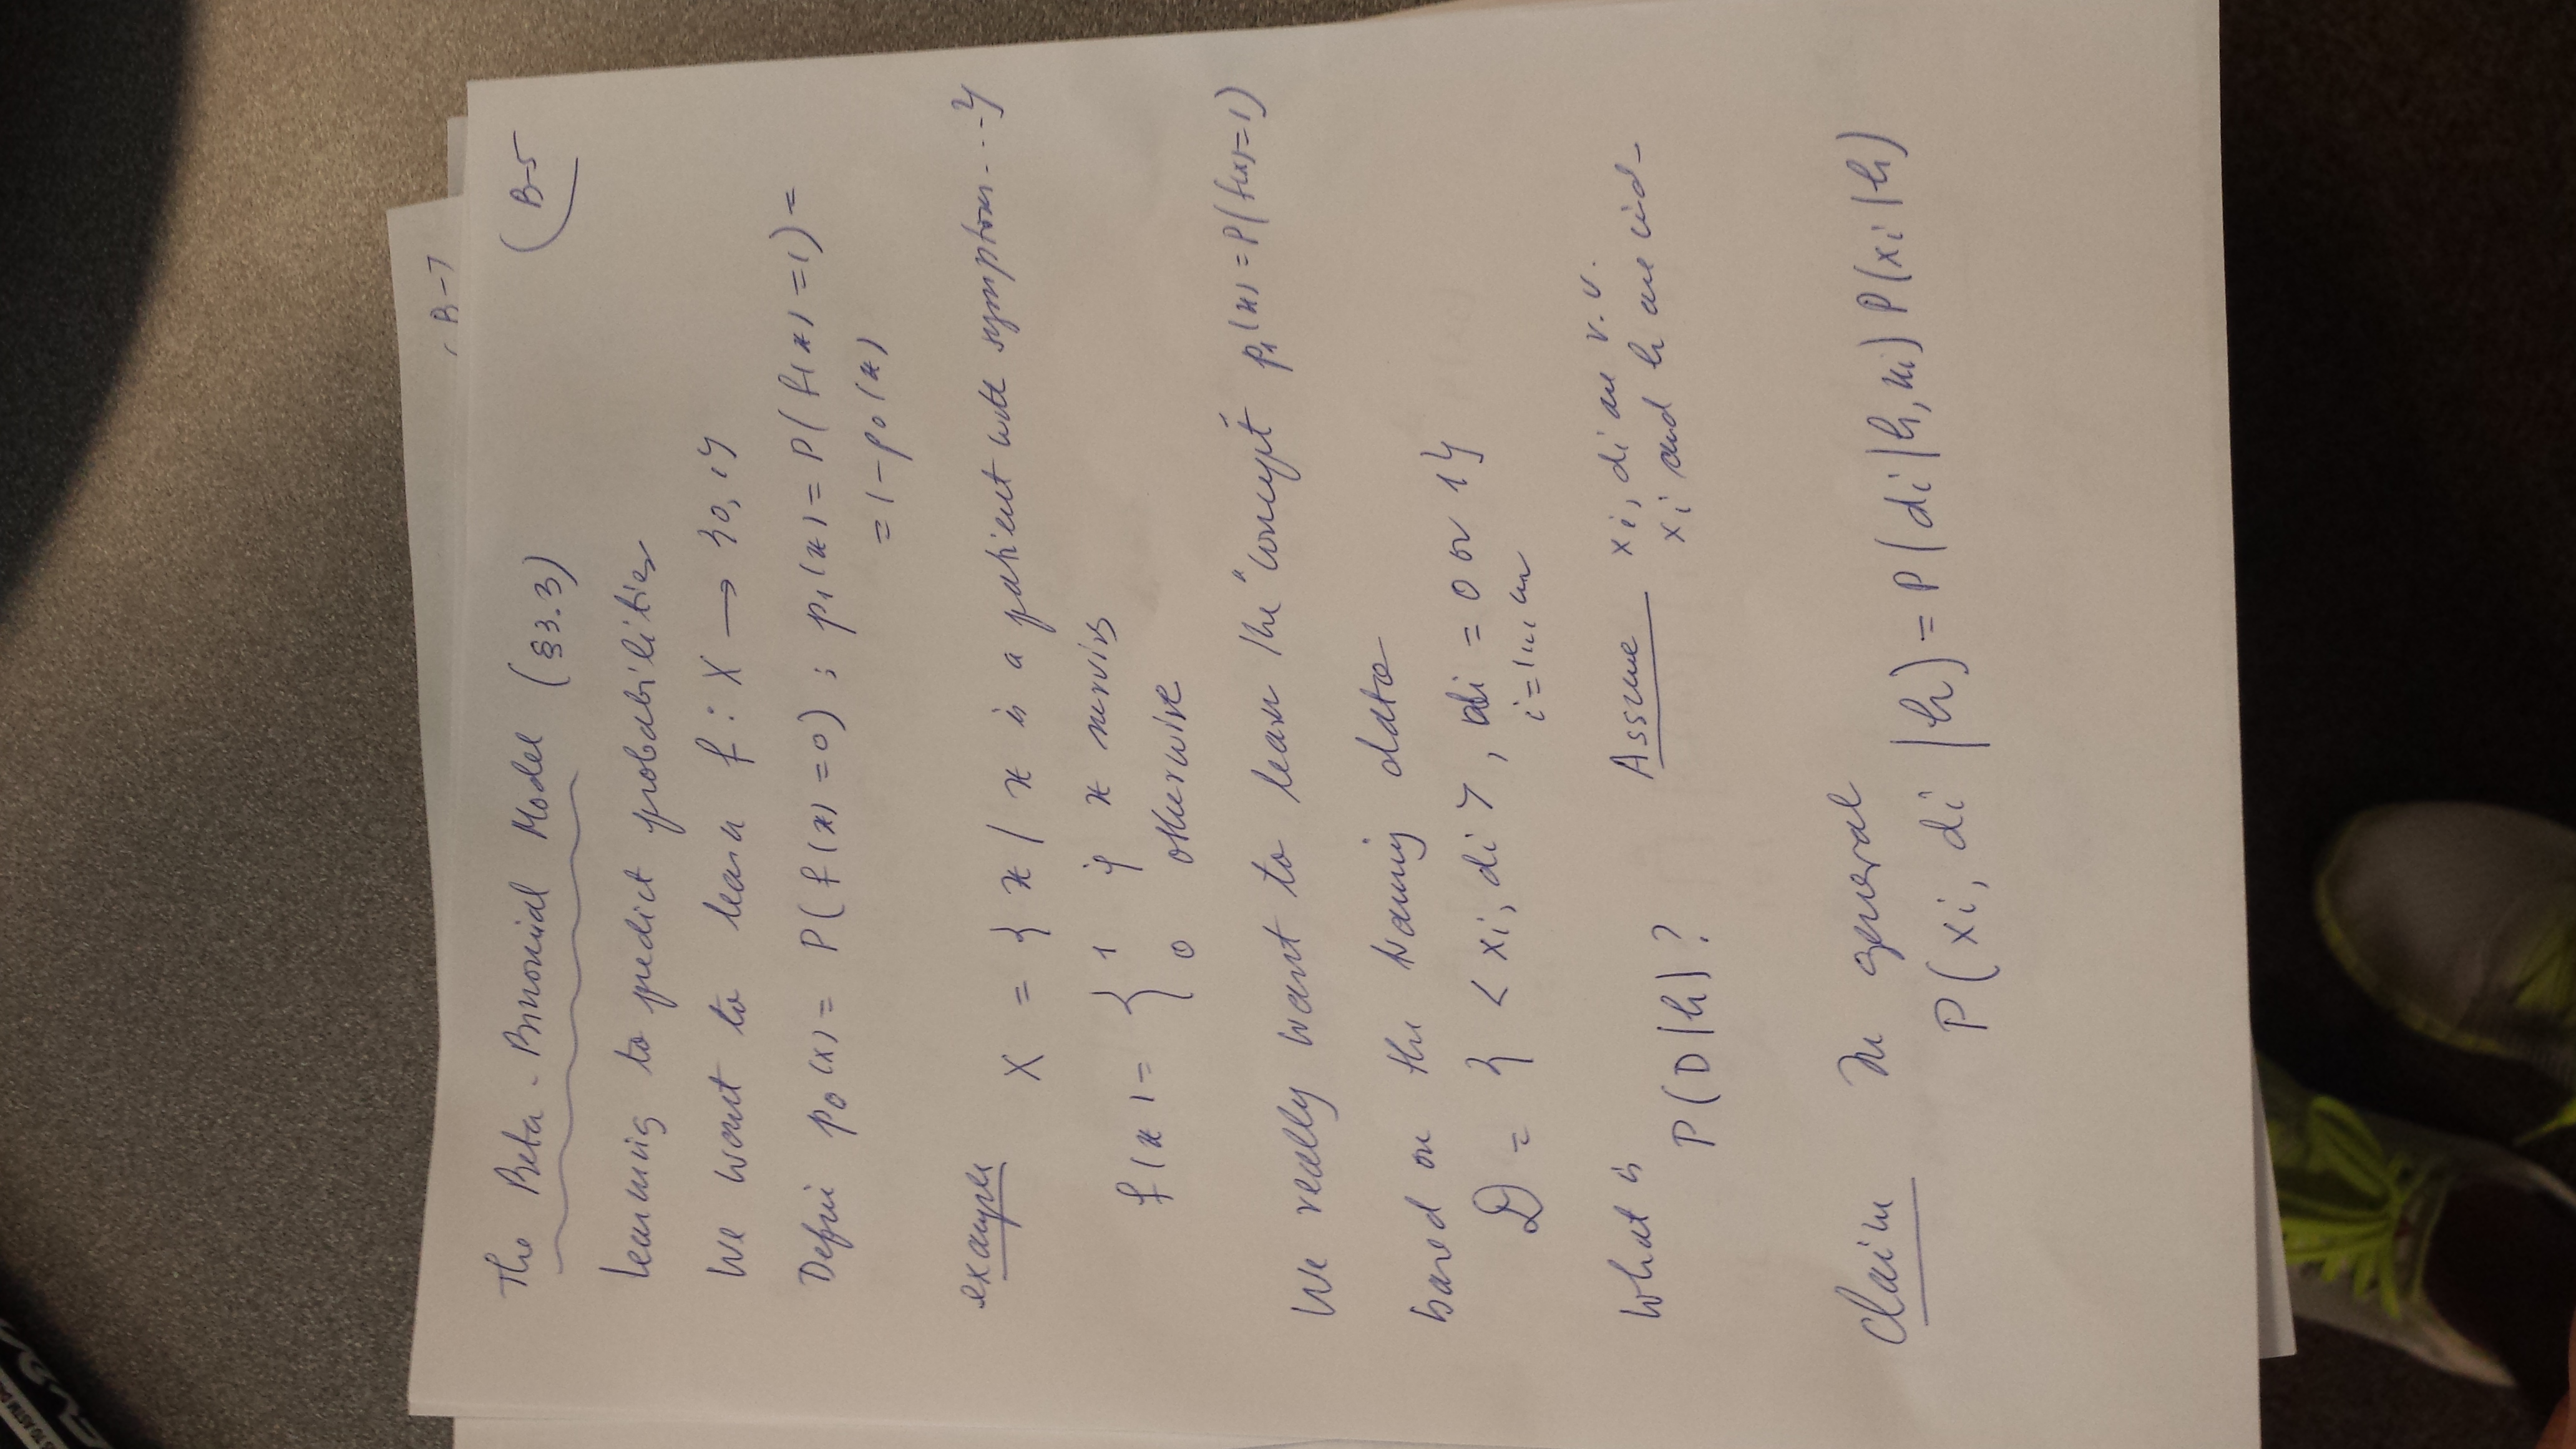 B-7
B-5
The Beta-Binomial Model (§3.3)
Learning to predict probabilities
We want to learn f : X → {0, 1}
Define p₀(x) = P(f(x) = 0) ; p₁(x) = P(f(x) = 1) =
= 1 - p₀(x)
example X = { x / x is a patient with symptom ---}
f(x) = { 1 if x survives
0 otherwise
We really want to learn the "concept" p₁(x) = P(f(x) = 1)
based on the training data
D = { < xi, di > , di = 0 or 1}
i = 1... m
What is Assume xi, di are r.v.
P(D|h)? xi and h are ind-
Claim In general
P(xi, di | h) = P(di | h, xi) P(xi | h)